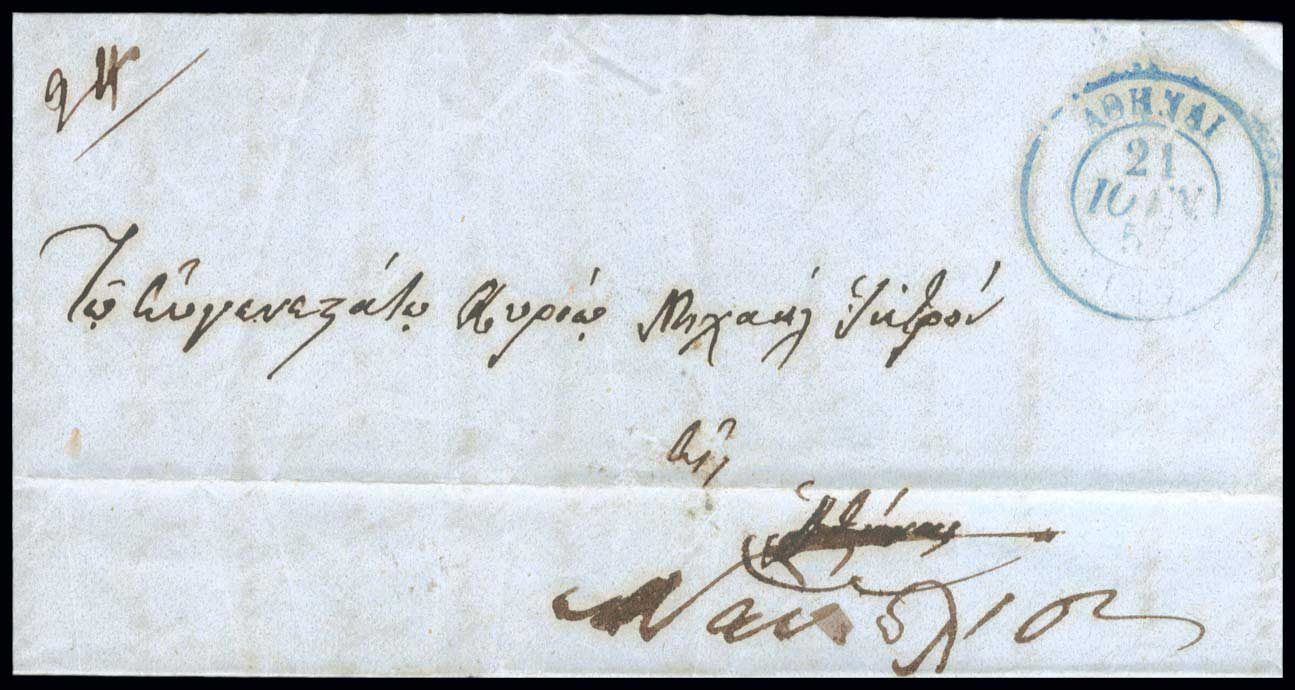 ΑΘΗΝΑΙ
21
ΙΟΥΝ
Τῷ Εὐγενεστάτῳ Κυρίῳ Μιχαὴλ Ἰατροῦ
εἰς
Ἀθήνας
Ναύπλιον